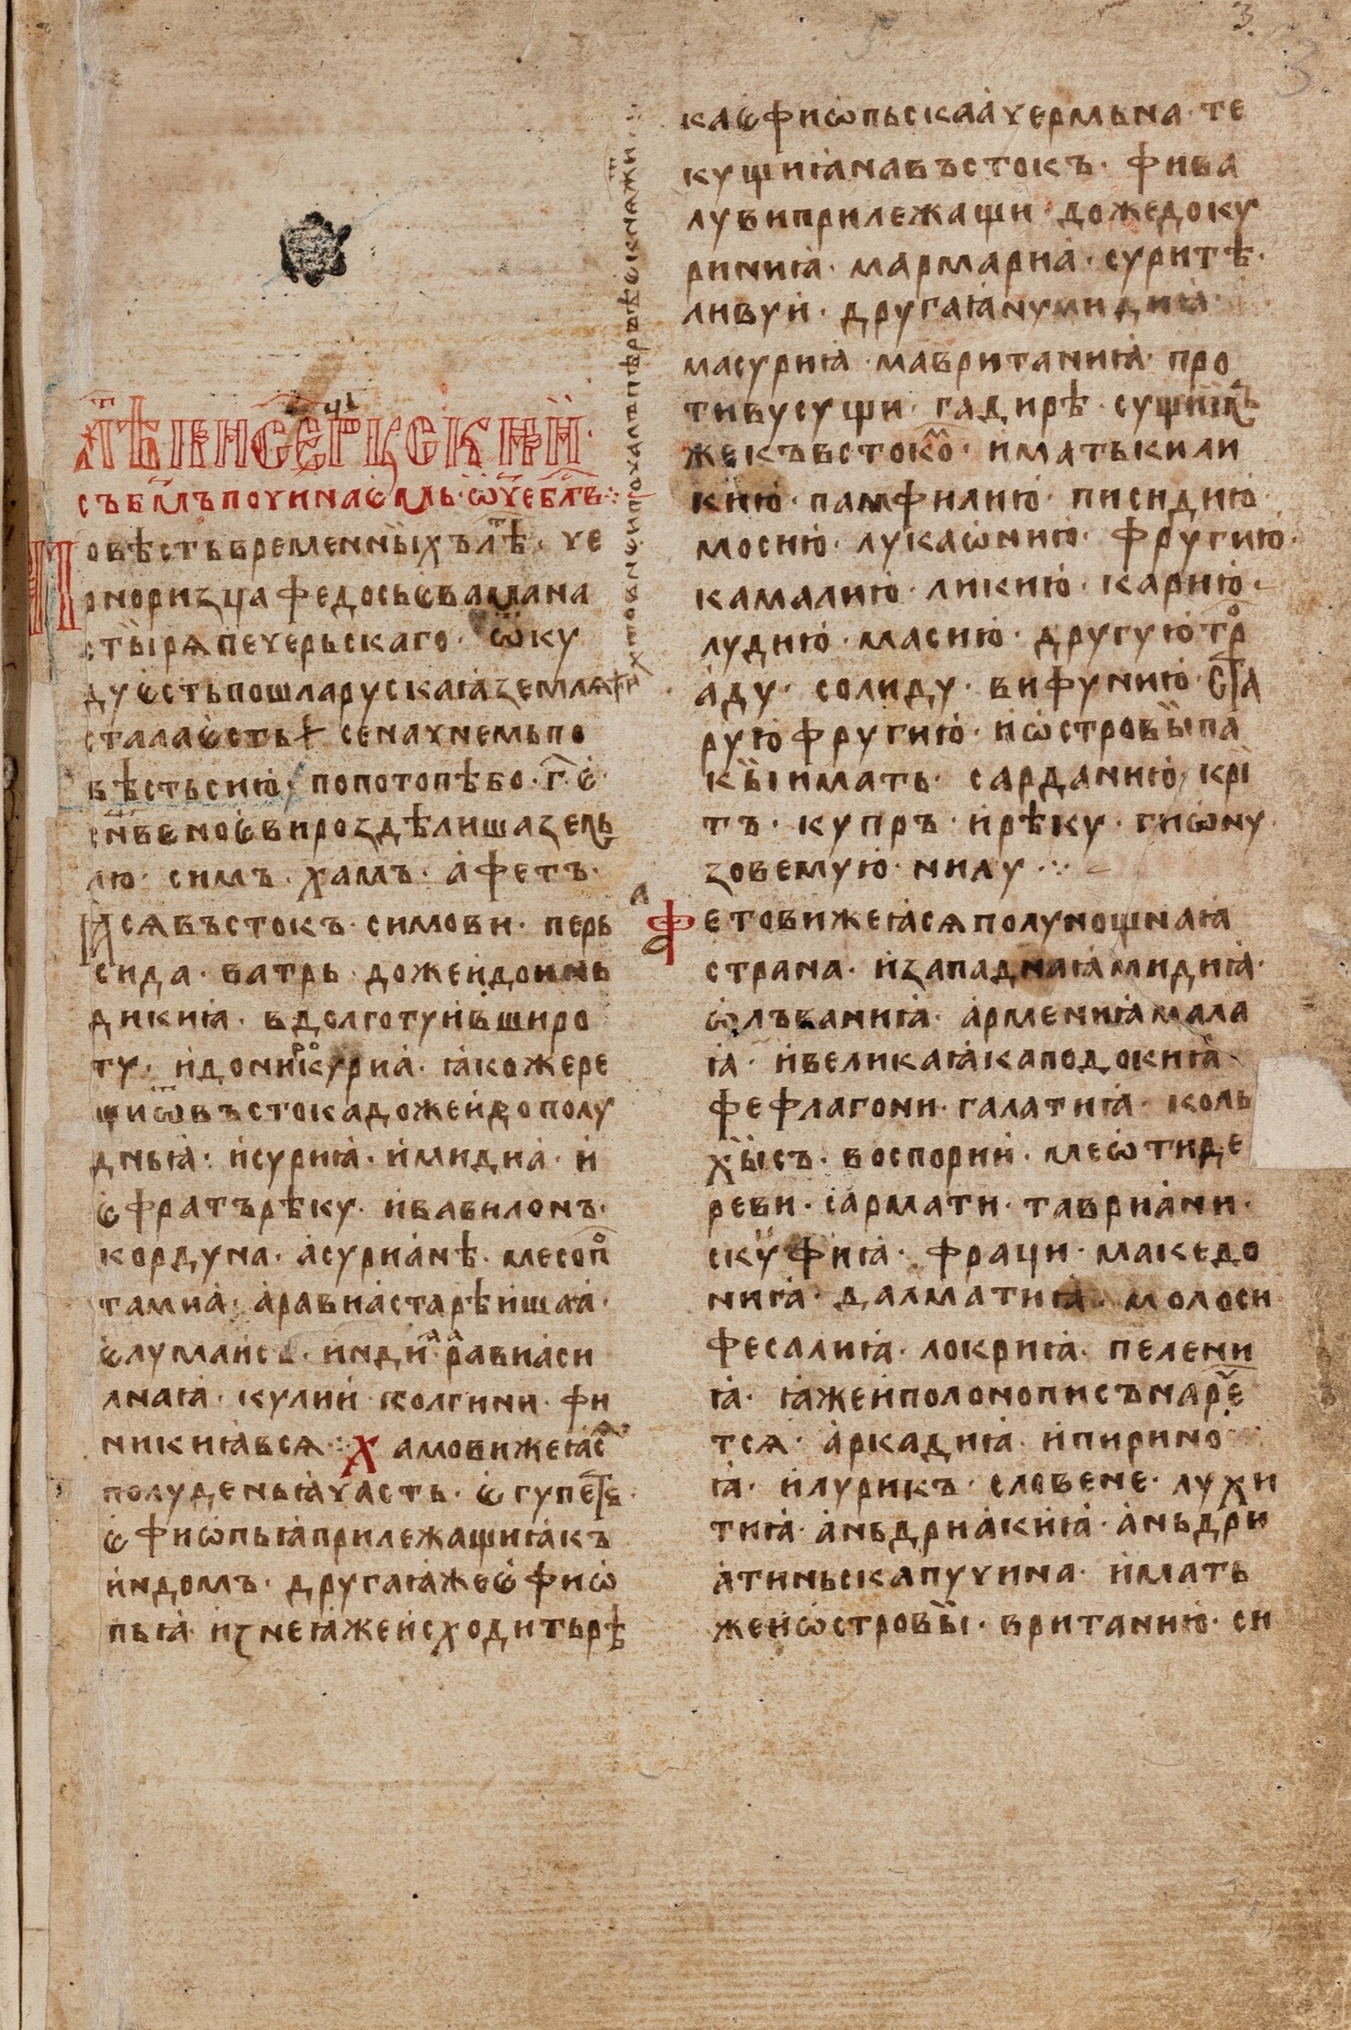 3.
3
лѣтописець рускии ·
съ бм҃ъ починаємъ · ѿч҃е бл҃в ·:·
Повѣсть временных̑ъ лѣт̑ · че
рноризца федосьєва мана
стырѧ печерьскаго · ѿку
ду єсть пошла рускаꙗ землѧ
стала єсть се начнемь по
вѣсть сию · по потопѣ бо · г҃ · є
сн҃ве ноєви роздѣлиша земь
лю · симъ · хамъ · афетъ ·
ꙗсѧ въстокъ · симови · перь
сида · ватрь · доже и до инь
дикиꙗ · в долготу и в широ
ту · и до никурⷪ҇иꙗ · ꙗкоже ре
щи ѿ въстока доже и до полу
дньꙗ · и суриꙗ · и мидиа · и
єфратъ рѣку · и вавилонъ ·
кордуна · асуриане · месопо
тамиа · аравиа старѣишаа ·
єлумаис · инди · равиа си
лнаꙗ · кулии · колгини · фи
никиꙗ всѧ ·:· Хамови же ꙗсѧ
полуденьꙗ часть · єгупетъ ·
єфиѡпьꙗ прилежащиꙗ къ
индомъ · другаꙗ же єфиѡ
пьꙗ · из неꙗже исходить рѣ
ка єфиѡпьскаа чермьна · те
кущиꙗ на въстокъ · фива
луви прилежащи · доже до ку
риниꙗ · мармариа · суритѣ ·
ливуи · другаꙗ нумидиꙗ ·
масуриꙗ · мавританиꙗ · про
тиву сущи · гадирѣ · сущиихъ
же къ встокомъ · имать кили
кию · памфилию · писидию ·
мосию · лукаѡнию · фругию ·
камалию · ликию · карию ·
лудию · масию · другую тро
аду · солиду · вифунию · ста
рую фругию · и ѡстровы па
кы имать · сарданию · кри
тъ · купръ · и рѣку · гиѡну
зовемую · нилу ·:·
Афетови же ꙗсѧ полунощнаꙗ
страна · и западнаꙗ мидиꙗ ·
ѡлъваниꙗ · армениꙗ мала
ꙗ · и великаꙗ каподокиꙗ
фефлагони · галатиꙗ · коль
хысъ · воспории · меѡти де
реви · сармати · тавриани ·
скуфиꙗ · фраци · македо
ниꙗ · далматиꙗ · молоси
фесалиꙗ · локриꙗ · пелени
ꙗ · ꙗже и полонописъ наре
тсѧ · аркадиꙗ · ипирино
ꙗ · илурикъ · словене · лухи
тиꙗ · аньдриакиꙗ · аньдри
атиньска пучина · имать
же и ѡстровы · вританию · си